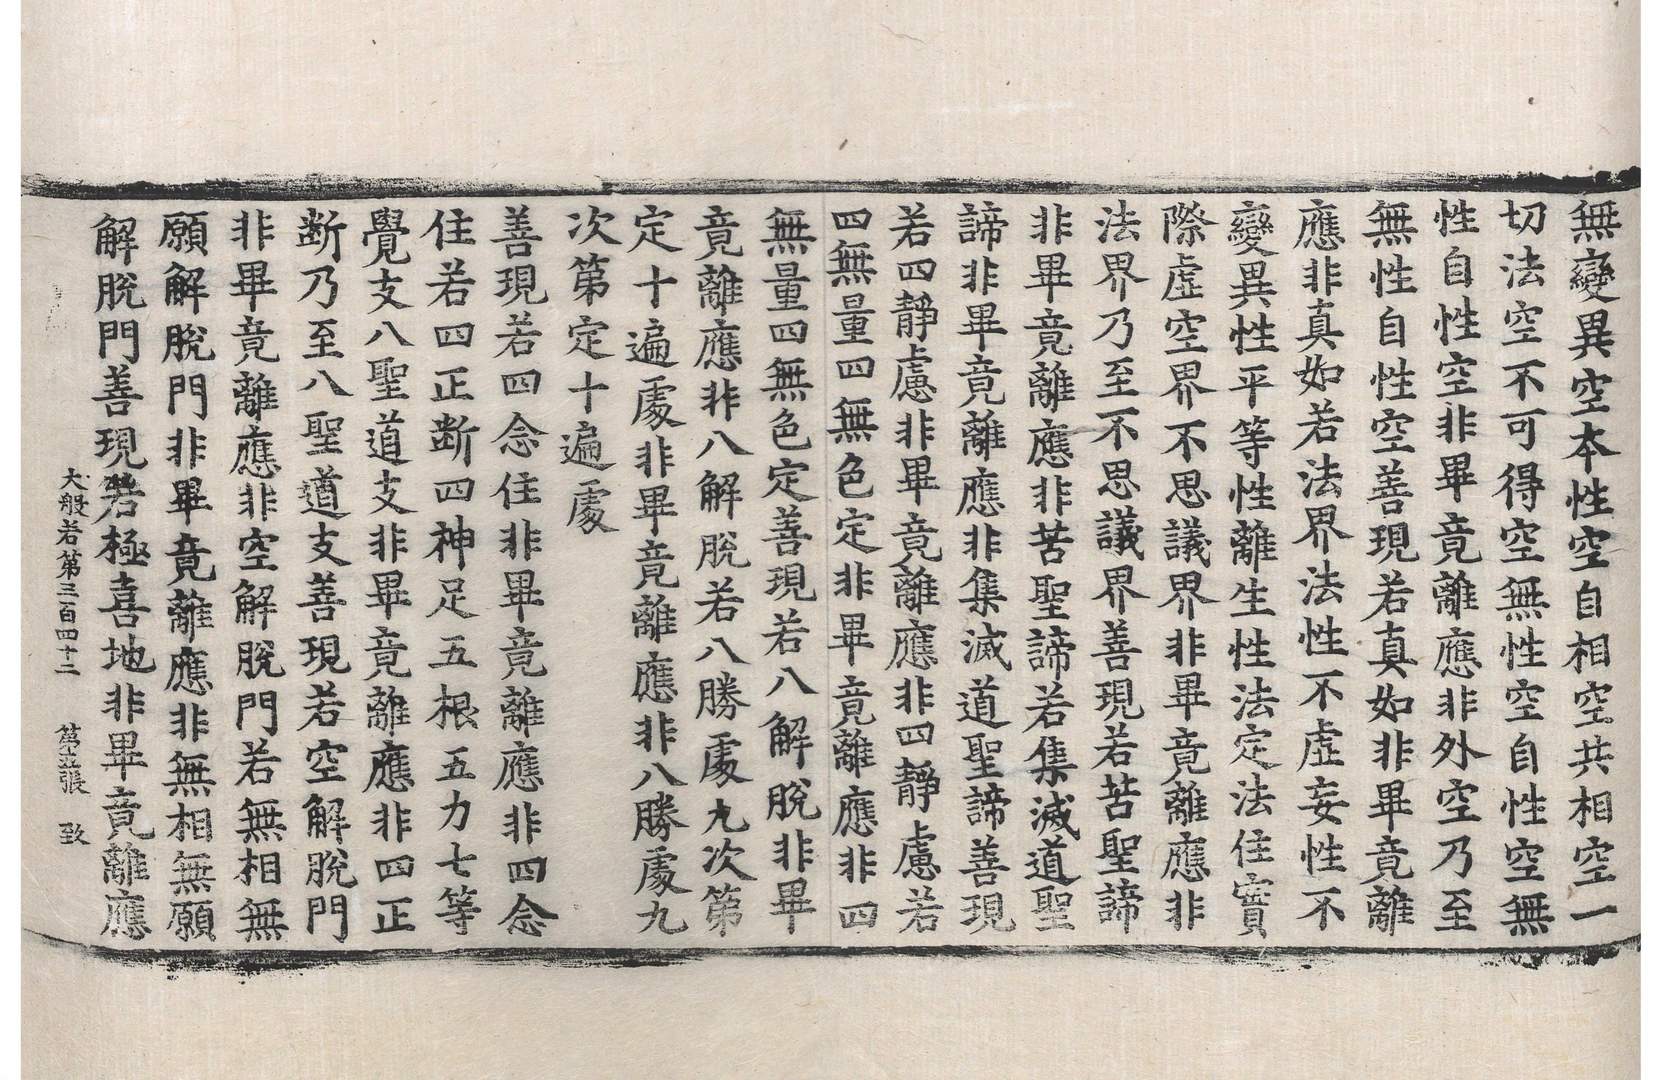 無變異空本性空自相空共相空一
切法空不可得空無性空自性空無
性自性空非畢竟離應非外空乃至
無性自性空善現若真如非畢竟離
應非真如若法界法性不虛妄性不
變異性平等性離生性法定法住實
際虛空界不思議界非畢竟離應非
法界乃至不思議界善現若苦聖諦
非畢竟離應非苦聖諦若集滅道聖
諦非畢竟離應非集滅道聖諦善現
若四靜慮非畢竟離應非四靜慮若
四無量四無色定非畢竟離應非四
無量四無色定善現若八解脫非畢
竟離應非八解脫若八勝處九次第
定十遍處非畢竟離應非八勝處九
次第定十遍處
善現若四念住非畢竟離應非四念
住若四正斷四神足五根五力七等
覺支八聖道支非畢竟離應非四正
斷乃至八聖道支善現若空解脫門
非畢竟離應非空解脫門若無相無
願解脫門非畢竟離應非無相無願
解脫門善現若極喜地非畢竟離應
大般若第三百四十二 第十五張 致